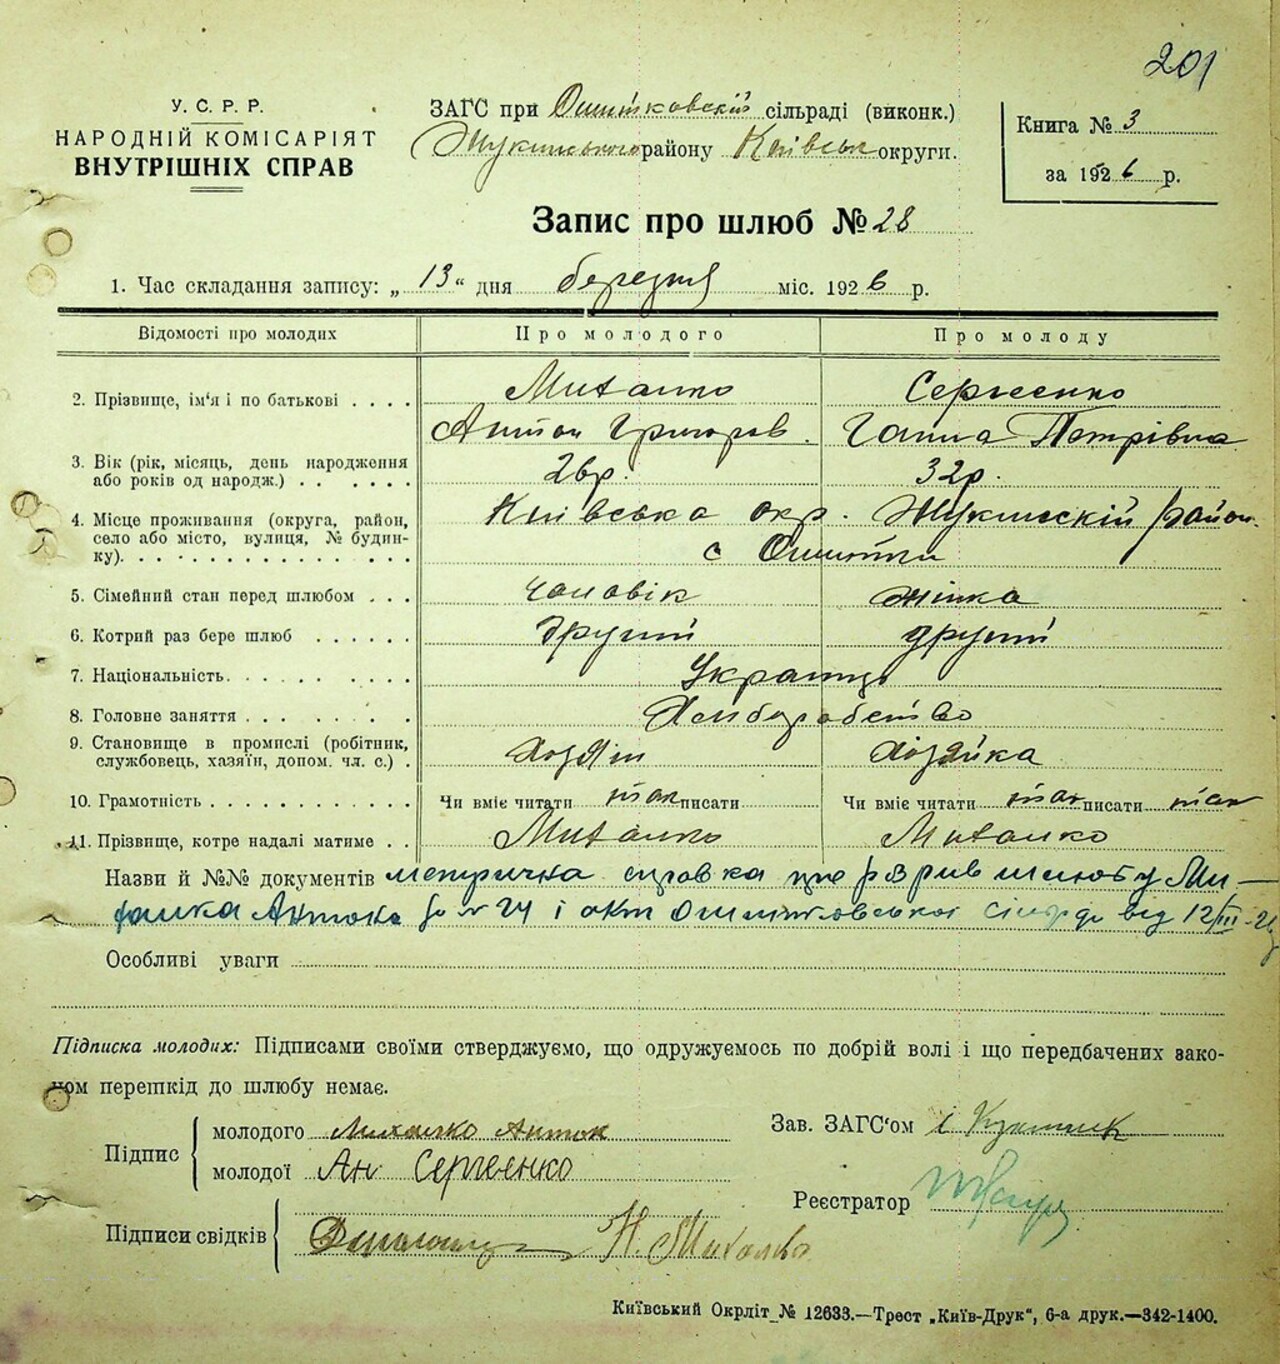 201
У. С. Р. Р.
НАРОДНІЙ КОМІСАРІЯТ
ВНУТРІШНІХ СПРАВ
ЗАГС при Ошитковскій сільраді (виконк.)
району Київськ округи.
Книга № 3
за 1926 р.
Запис про шлюб № 28
1. Час складання запису: „ 13 “ дня березня міс. 1926 р.
Відомості про молодих Про молодого Про молоду
2. Прізвище, ім'я і по батькові . . . . Михалко Сергеенко
Антон Григоров. Ганна Петрівна
3. Вік (рік, місяць, день народження
або років од народж.) . . . . . . 26р. 32р.
4. Місце проживання (округа, район,
село або місто, вулиця, № будин-
ку). . . . . . . . . . . . . . Київська окр. Жукинскій район.
с Ошитки
5. Сімейний стан перед шлюбом . . . чоловік жінка
6. Котрий раз бере шлюб . . . . . . другий другий
7. Національність. . . . . . . . . . Українці
8. Головне заняття . . . . . . . . Хлиборобство
9. Становище в промислі (робітник,
службовець, хазяїн, допом. чл. с.) . Хозяїн Хозяйка
10. Грамотність . . . . . . . . . . . . Чи вміє читати так писати Чи вміє читати так писати так
11. Прізвище, котре надалі матиме . . Михалко Михалко
Назви й №№ документів метрична справка про розрив шлюбу Ми-
халка Антона за № 24 і акт Ошитковської сільради від 12/III-26
Особливі уваги
Підписка молодих: Підписами своїми стверджуємо, що одружуємось по добрій волі і що передбачених зако-
ном перешкід до шлюбу немає.
Підпис
молодого Михалко Антон
молодої Ан Сергеенко
Зав. ЗАГС'ом
Реєстратор
Підписи свідків Н. Михалко
Київський Окрліт № 12633.—Трест „Київ-Друк“, 6-а друк.—342-1400.